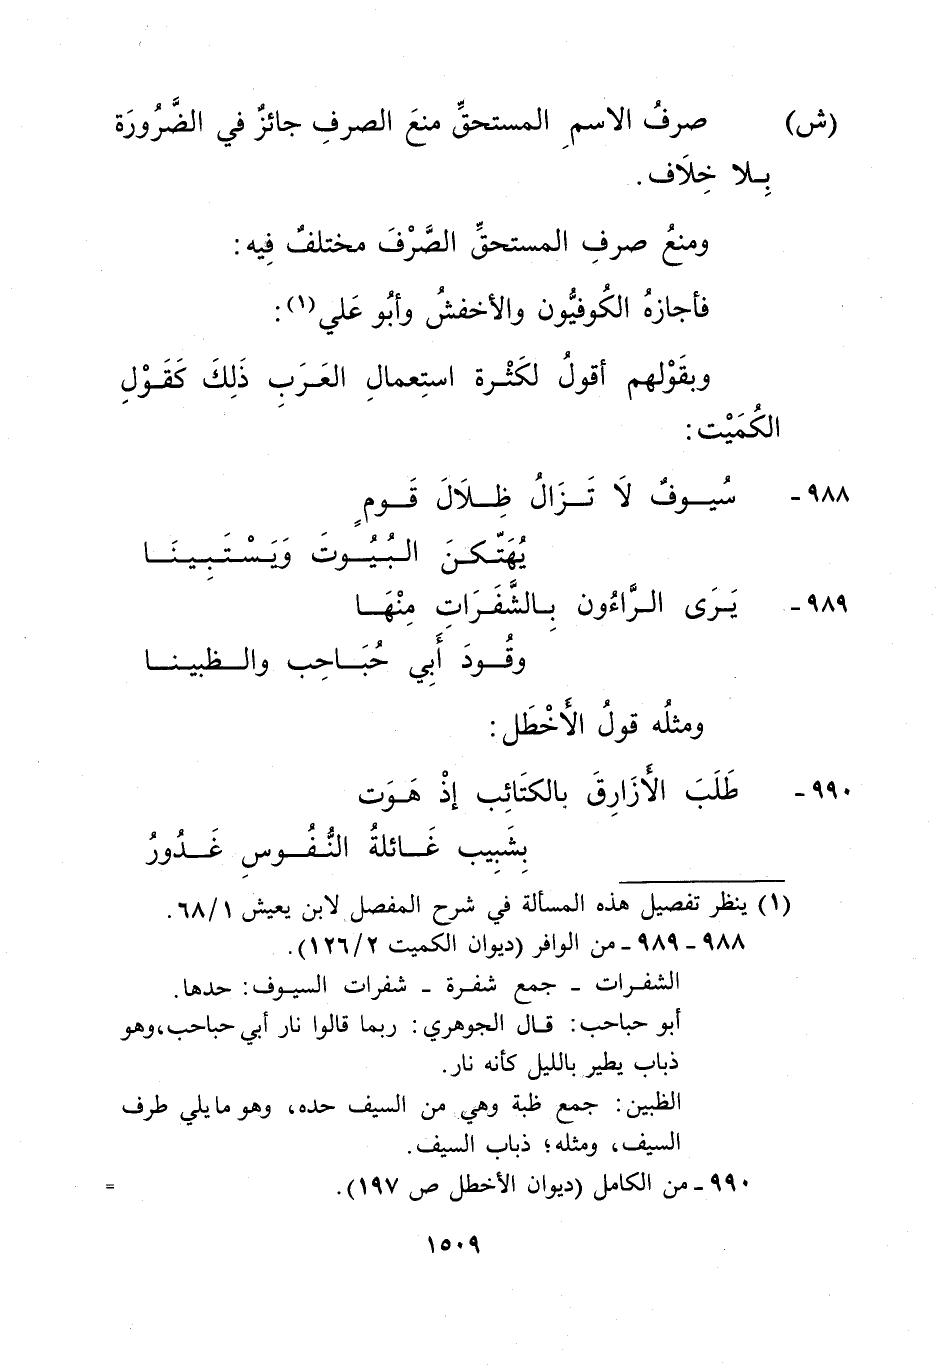 (ش) صرفُ الاسمِ المستحقِّ منعَ الصرفِ جائزٌ في الضَّرُورَة
بِلا خِلَاف.
ومنعُ صرفِ المستحقِّ الصَّرْفَ مختلفٌ فِيه:
فأجازهُ الكُوفيُّون والأخفشُ وأبُو عَلي(١):
وبقَوْلهم أقولُ لكَثْرة استِعمالِ العَرَبِ ذَلِكَ كَقَوْلِ
الكُمَيْت:
٩٨٨- سُيوفٌ لَا تَزَالُ ظِلَالَ قَومٍ
يُهَتِّكنَ البُيُوتَ وَيَسْتَبِينَا
٩٨٩- يَرَى الرَّاءُون بِالشَّفَرَاتِ مِنْهَا
وقُودَ أَبِي حُبَاحِب والظبينا
ومثلُه قولُ الأَخْطَل:
٩٩٠- طَلَبَ الأَزَارِقَ بالكتَائِب إذْ هَوَت
بِشَبِيب غَائلةُ النُّفُوسِ غَدُورُ
(١) ينظر تفصيل هذه المسألة في شرح المفصل لابن يعيش ٦٨/١.
٩٨٨ - ٩٨٩ - من الوافر (ديوان الكميت ١٢٦/٢).
الشفرات - جمع شفرة - شفرات السيوف: حدها.
أبو حباحب: قال الجوهري: ربما قالوا نار أبي حباحب، وهو
ذباب يطير بالليل كأنه نار.
الظبين: جمع ظبة وهي من السيف حده، وهو ما يلي طرف
السيف، ومثله؛ ذباب السيف.
٩٩٠ - من الكامل (ديوان الأخطل ص ١٩٧). =
١٥٠٩